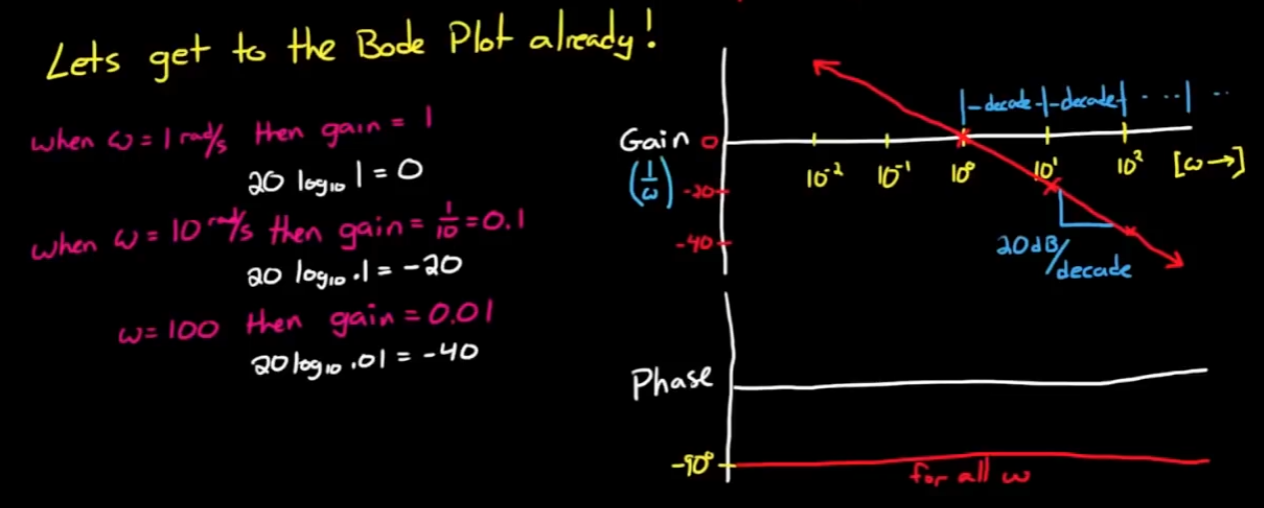 Lets get to the Bode Plot already!
when ω = 1 rad/s then gain = 1
20 log₁₀ 1 = 0
when ω = 10 rad/s then gain = 1/10 = 0.1
20 log₁₀ .1 = -20
ω = 100 then gain = 0.01
20 log₁₀ .01 = -40
|-decade-|-decade-| · ...| ··
Gain 0
(1/ω)
10⁻² 10⁻¹ 10⁰ 10¹ 10² [ω→]
-20
-40
20dB/decade
Phase
-90°
for all ω